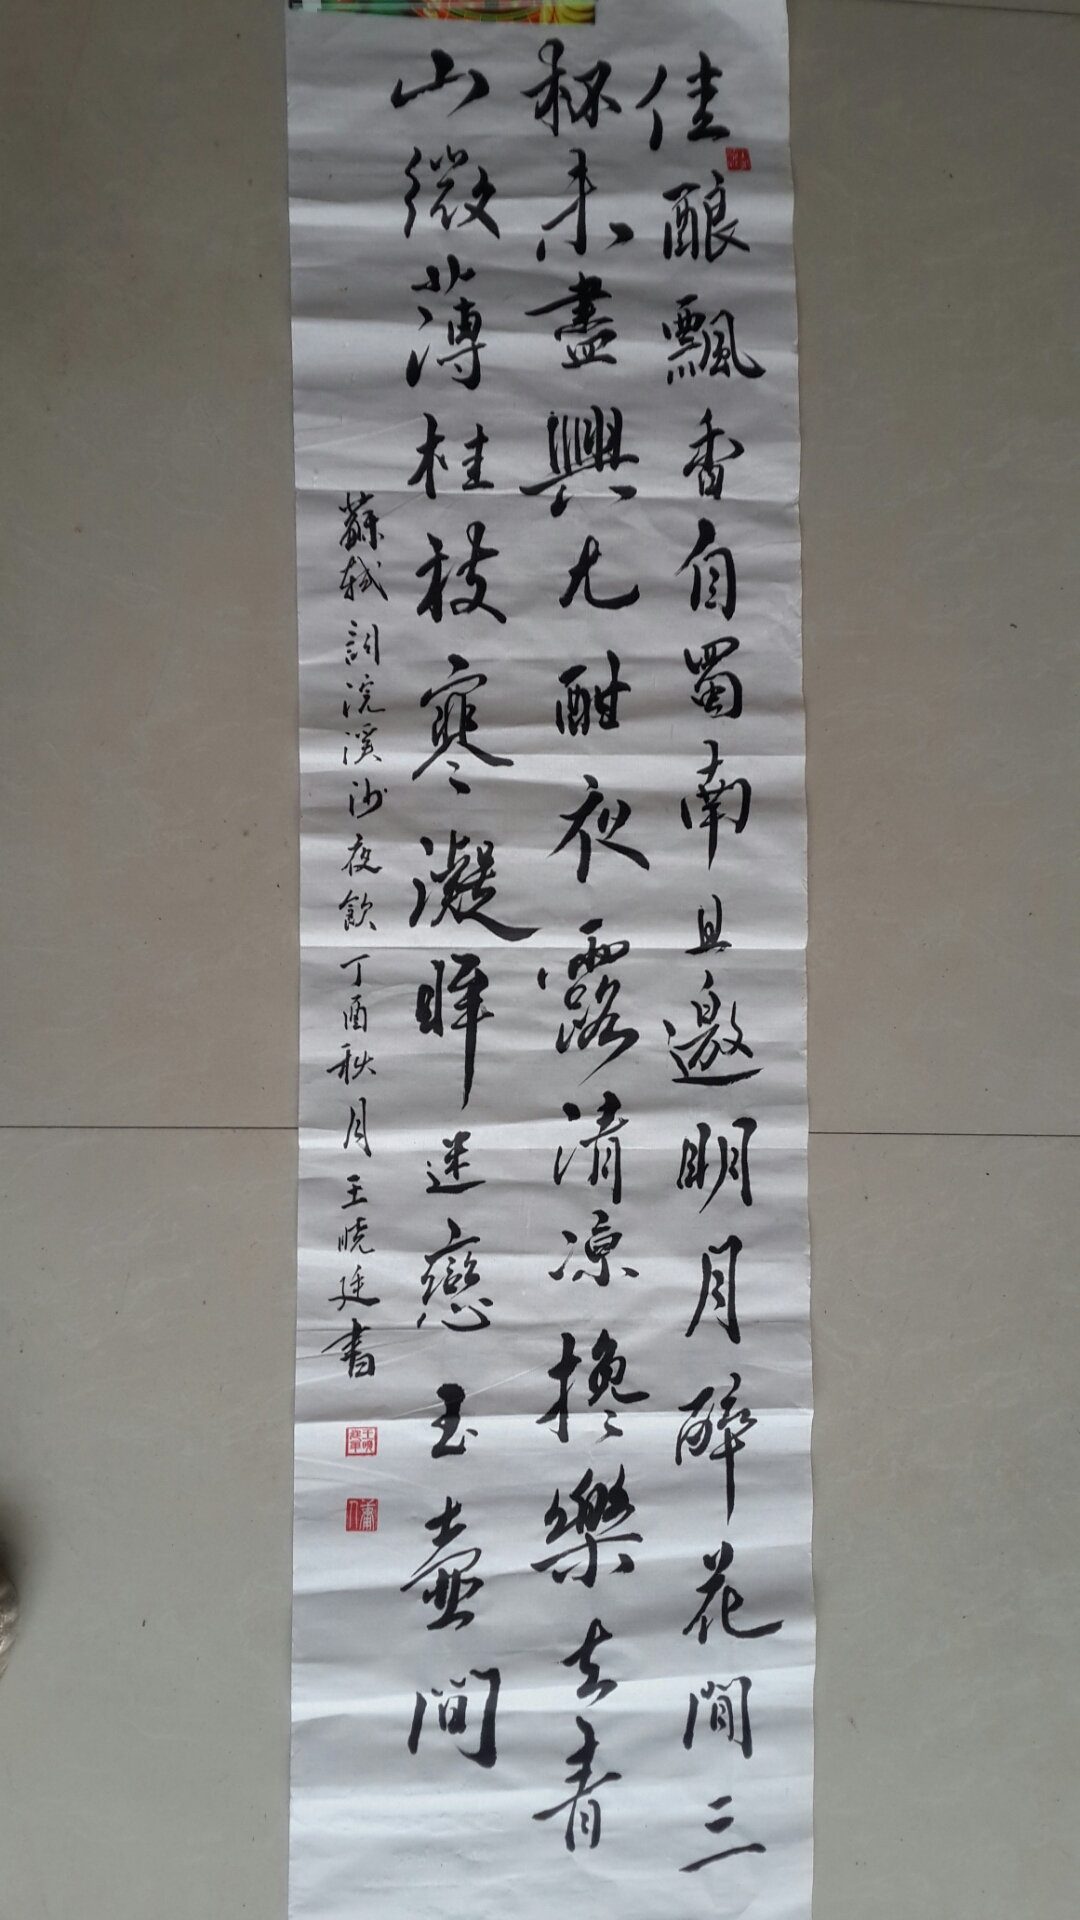 佳酿飄香自蜀南且邀明月醉花間三
杯未盡興尤酣夜露清凉搀樂去青
山微薄桂枝寒凝眸迷戀玉壺間
蘇軾詞浣溪沙夜飲丁酉秋月王曉廷書